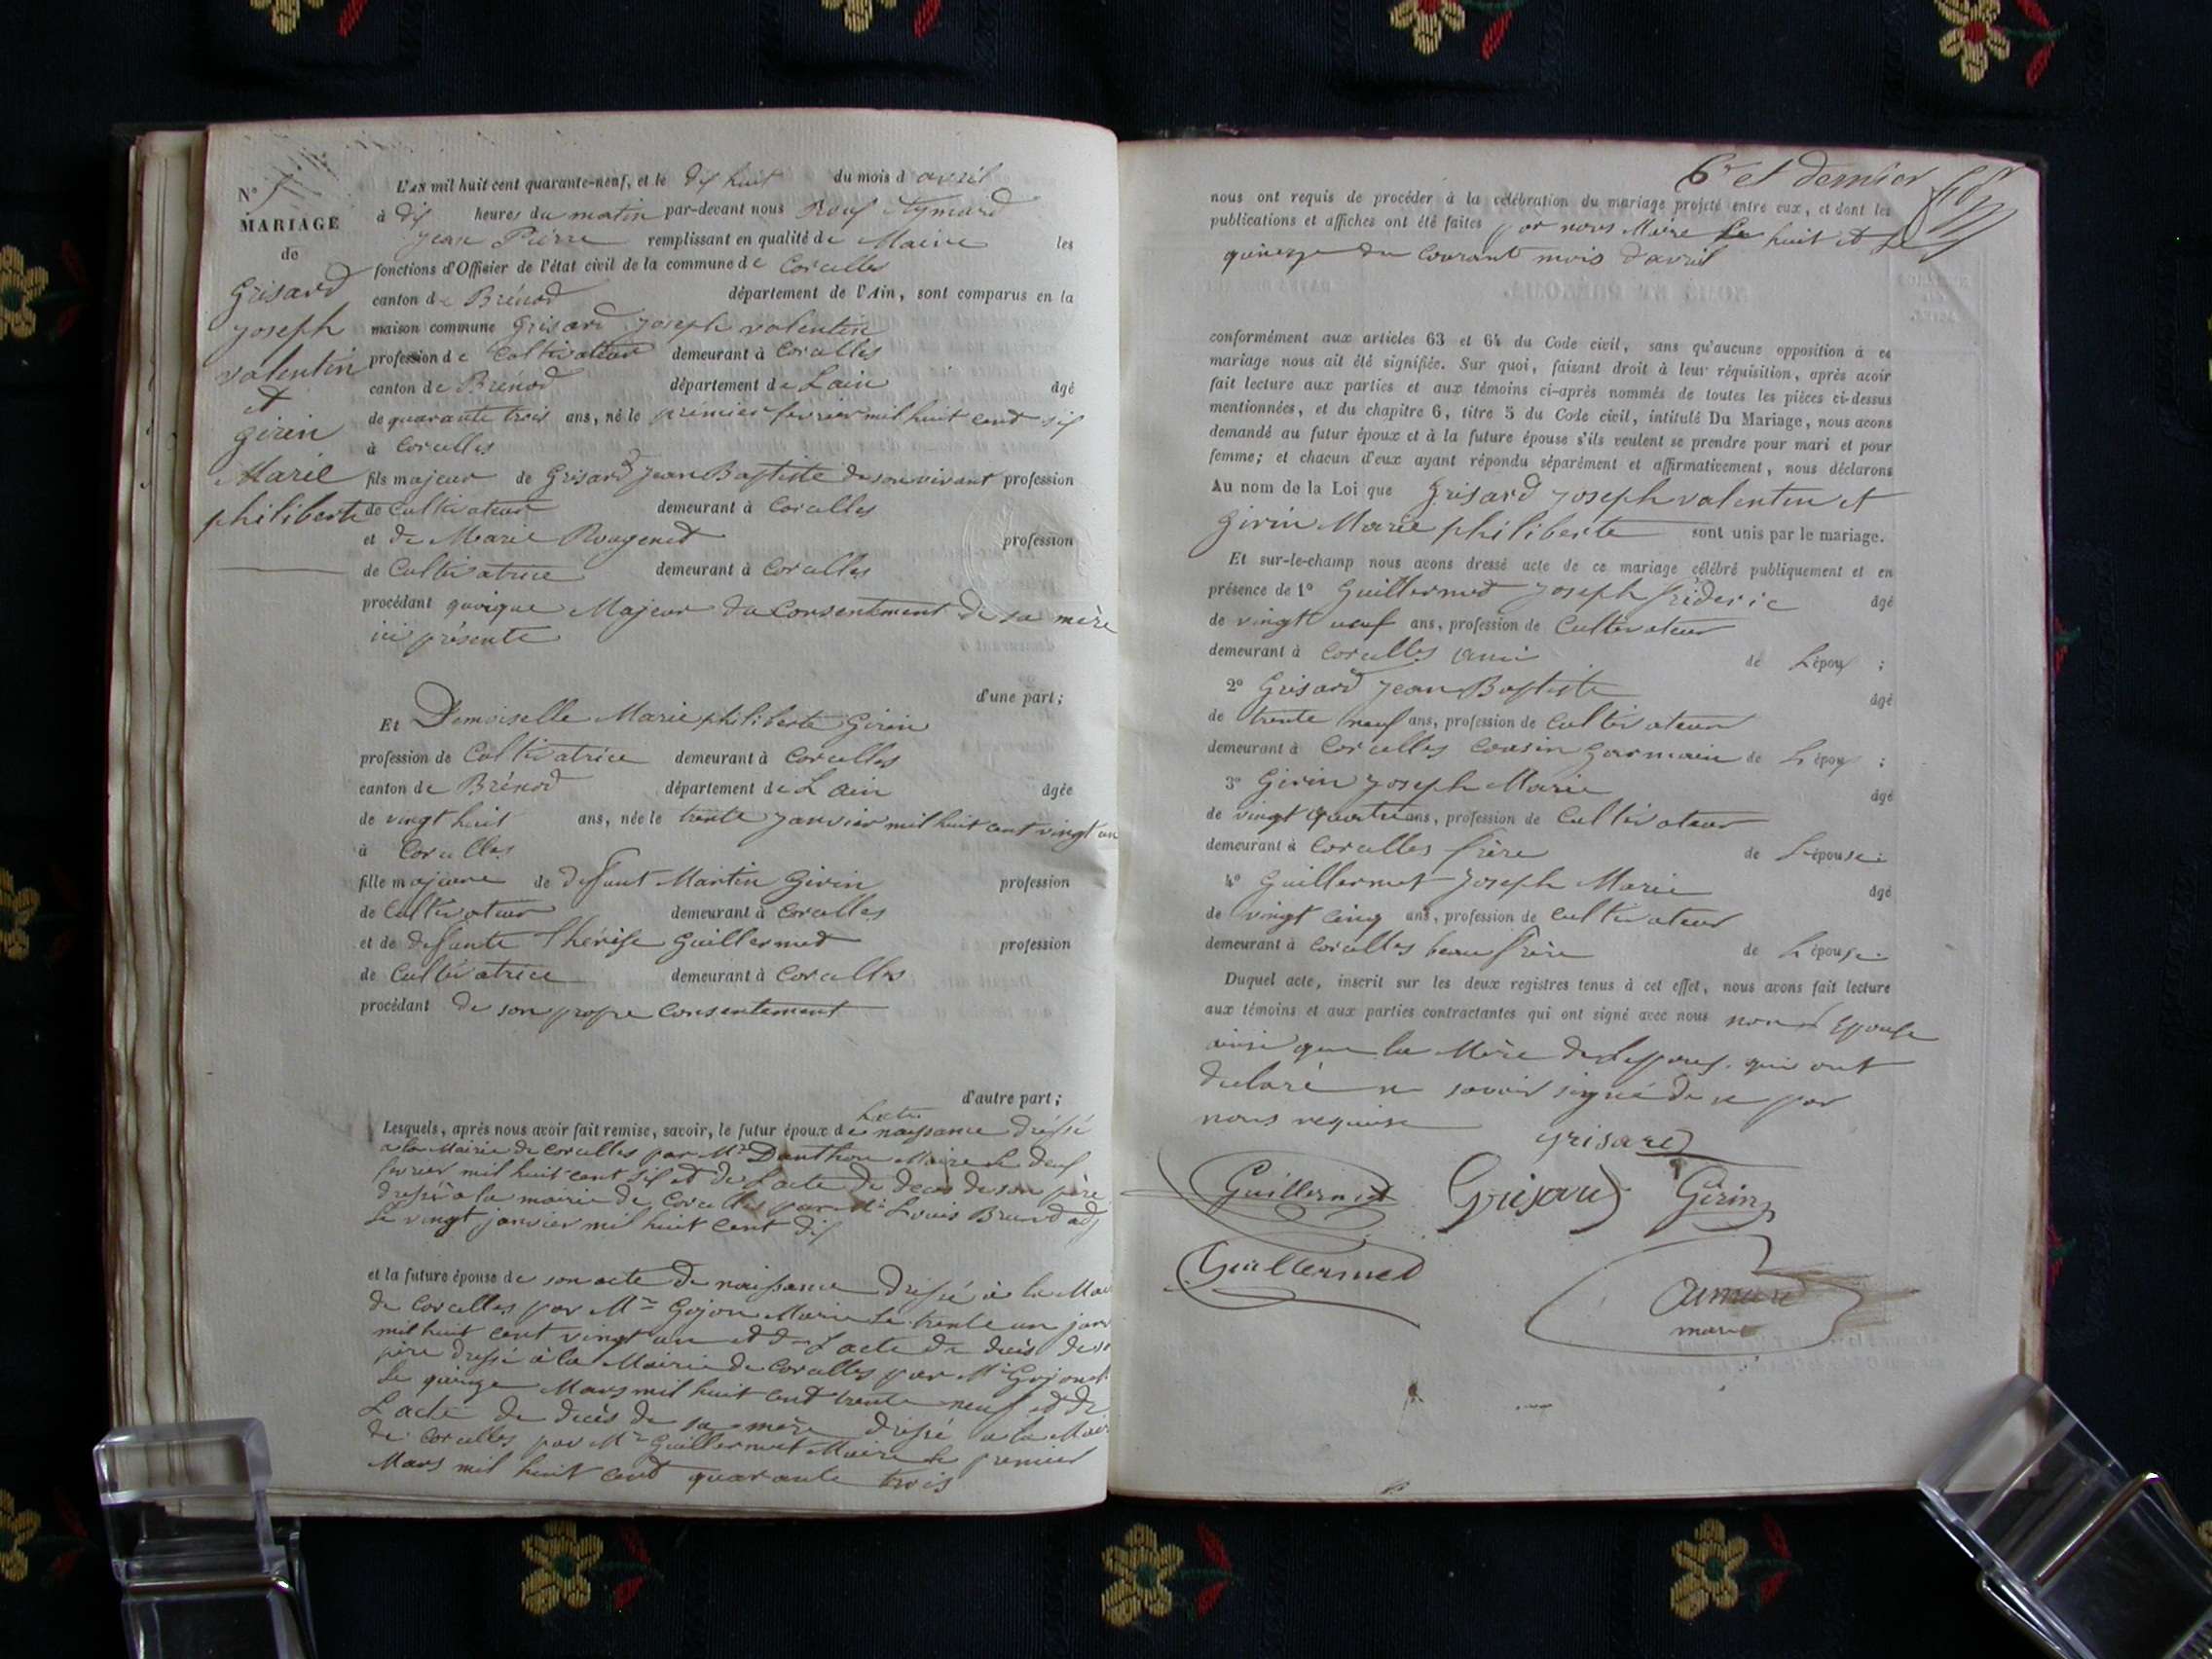 N° 5
MARIAGE
de
Grisard
Joseph
valentin
et
Girin
Marie
philiberte
L'AN mil huit cent quarante-neuf, et le dix huit du mois d avril
à dix heures du matin par-devant nous Aymard
Jean Pierre remplissant en qualité de Maire les
fonctions d'Officier de l'état civil de la commune de Corcelles
canton de Brénod département de l'Ain, sont comparus en la
maison commune Grisard Joseph valentin
profession de Cultivateur demeurant à Corcelles
canton de Brénod département de Lain âgé
de quarante trois ans, né le premier fevrier mil huit cent six
à Corcelles
fils majeur de Grisard Jean Baptiste de son vivant profession
de Cultivateur demeurant à Corcelles
et de Marie Rougemed profession
de Cultivatrice demeurant à Corcelles
procédant quoique Majeur du Consentement de sa mère
ici présente
d'une part;
Et Demoiselle Marie philiberte Girin
profession de Cultivatrice demeurant à Corcelles
canton de Brénod département de Lain âgée
de vingt huit ans, née le trente Janvier mil huit cent vingt un
à Corcelles
fille majeure de deffunt Martin Girin profession
de Cultivateur demeurant à Corcelles
et de deffunte Thérèse Guillermed profession
de Cultivatrice demeurant à Corcelles
procédant de son propre Consentement
d'autre part;
Lacte
Lesquels, après nous avoir fait remise, savoir, le futur époux de naissance dréssé
a la Mairie de Corcelles par Mr Danthon Maire le deux
fevrier mil huit cent six et de Lacte de décès de son père
dréssé a la mairie de Corcelles par Mr Louis Brund adj
Le vingt janvier mil huit cent dix
et la future épouse de son acte de naissance dréssé à la Mai
de Corcelles par Mr Gojon Maire Le trente un janv
mil huit cent vingt un et de Lacte de décès de so
père dressé à la Mairie de Corcelles par Mr Gojon
Le quinze Mars mil huit cent trente neuf et de
Lacte de decès de sa mère dréssé a la Mair
de Corcelles par Mr Guillermet Maire le premier
Mars mil huit cent quarante trois
6e et dernier
nous ont requis de procéder à la célébration du mariage projeté entre eux, et dont les
publications et affiches ont été faites par nous Maire Le huit et Le
quinze du courant mois d'avril
conformément aux articles 63 et 64 du Code civil, sans qu'aucune opposition à ce
mariage nous ait été signifiée. Sur quoi, faisant droit à leur réquisition, après avoir
fait lecture aux parties et aux témoins ci-après nommés de toutes les pièces ci-dessus
mentionnées, et du chapitre 6, titre 5 du Code civil, intitulé Du Mariage, nous avons
demandé au futur époux et à la future épouse s'ils veulent se prendre pour mari et pour
femme; et chacun d'eux ayant répondu séparément et affirmativement, nous déclarons
Au nom de la Loi que Grisard Joseph valentin et
Girin Marie philiberte sont unis par le mariage.
Et sur-le-champ nous avons dressé acte de ce mariage célébré publiquement et en
présence de 1° Guillermed Joseph fréderic âgé
de vingt neuf ans, profession de Cultivateur
demeurant à Corcelles ami de Lépoux ;
2° Grisard Jean Baptiste âgé
de trente neuf ans, profession de Cultivateur
demeurant à Corcelles Cousin Germain de Lépoux ;
3° Girin Joseph Marie âgé
de vingt quatre ans, profession de Cultivateur
demeurant à Corcelles frère de Lépouse ;
4° Guillermet Joseph Marie âgé
de vingt cinq ans, profession de Cultivateur
demeurant à Corcelles beau frère de Lépouse.
Duquel acte, inscrit sur les deux registres tenus à cet effet, nous avons fait lecture
aux témoins et aux parties contractantes qui ont signé avec nous non L'Epouse
ainsi que la Mère de Lepoux qui ont
declaré ne savoir signé de ce par
nous requise
grisard
Guillermet Grisard Girin
Guillermed
Aimard
maire